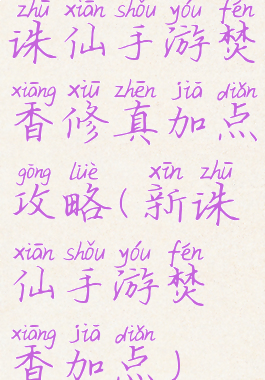 zhū xiān shǒu yóu fén
诛仙手游焚
xiāng xiū zhēn jiā diǎn
香修真加点
gōng lüè xīn zhū
攻略(新诛
xiān shǒu yóu fén
仙手游焚
xiāng jiā diǎn
香加点)